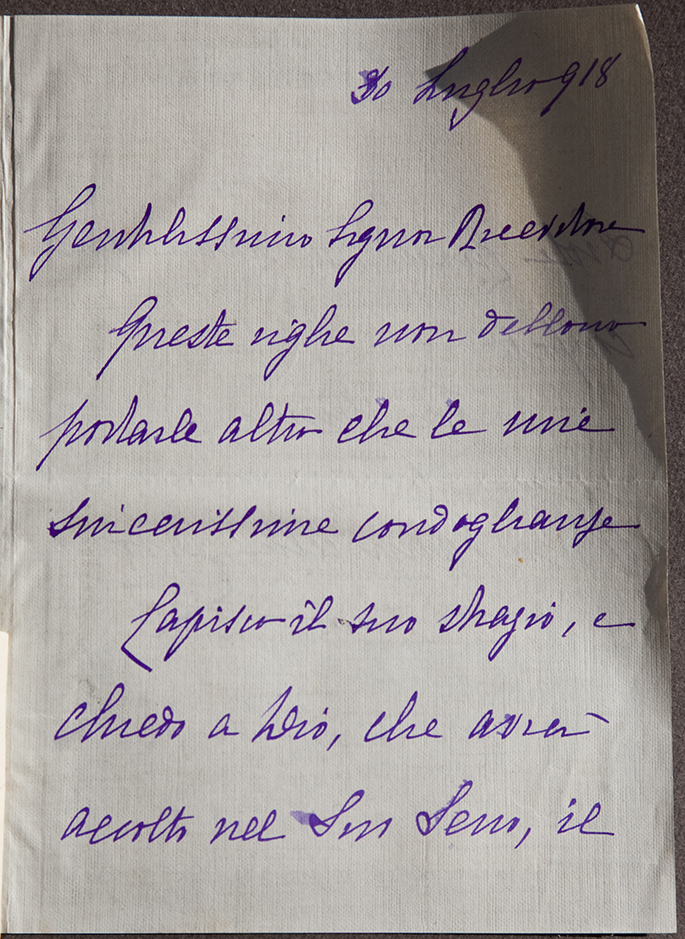 30 Luglio 918
Gentilissimo Signor Ricevitore
Queste righe non debbono
portarle altro che le mie
sincerissime condoglianze
Capisco il suo strazio, e
chiedo a Dio, che avrà
accolto nel Suo Seno, il